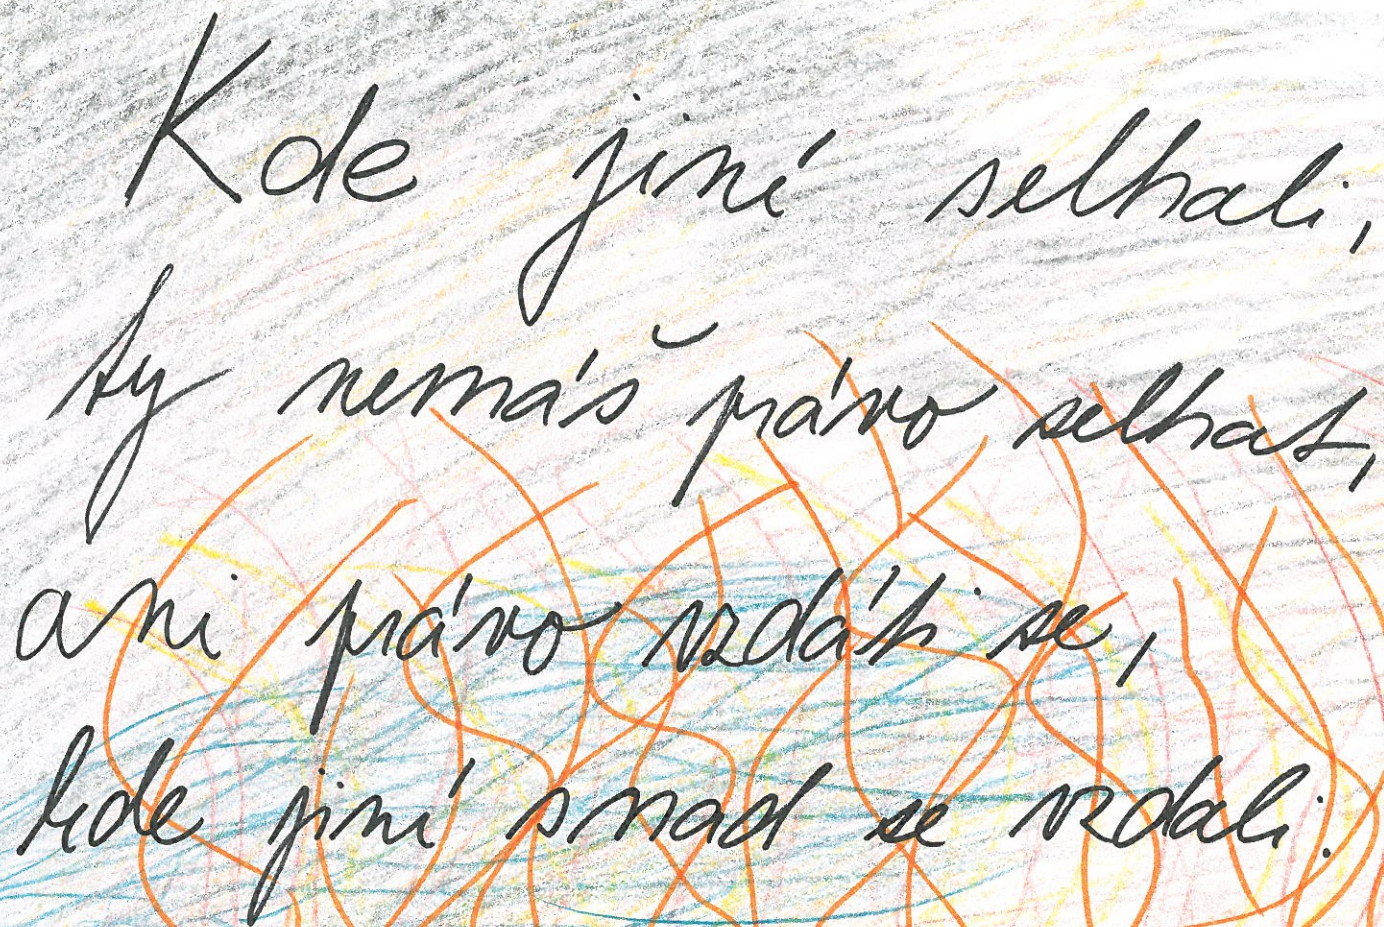 Kde jiní selhali,
ty nemáš právo selhat,
ani právo vzdáti se,
kde jiní snad se vzdali.